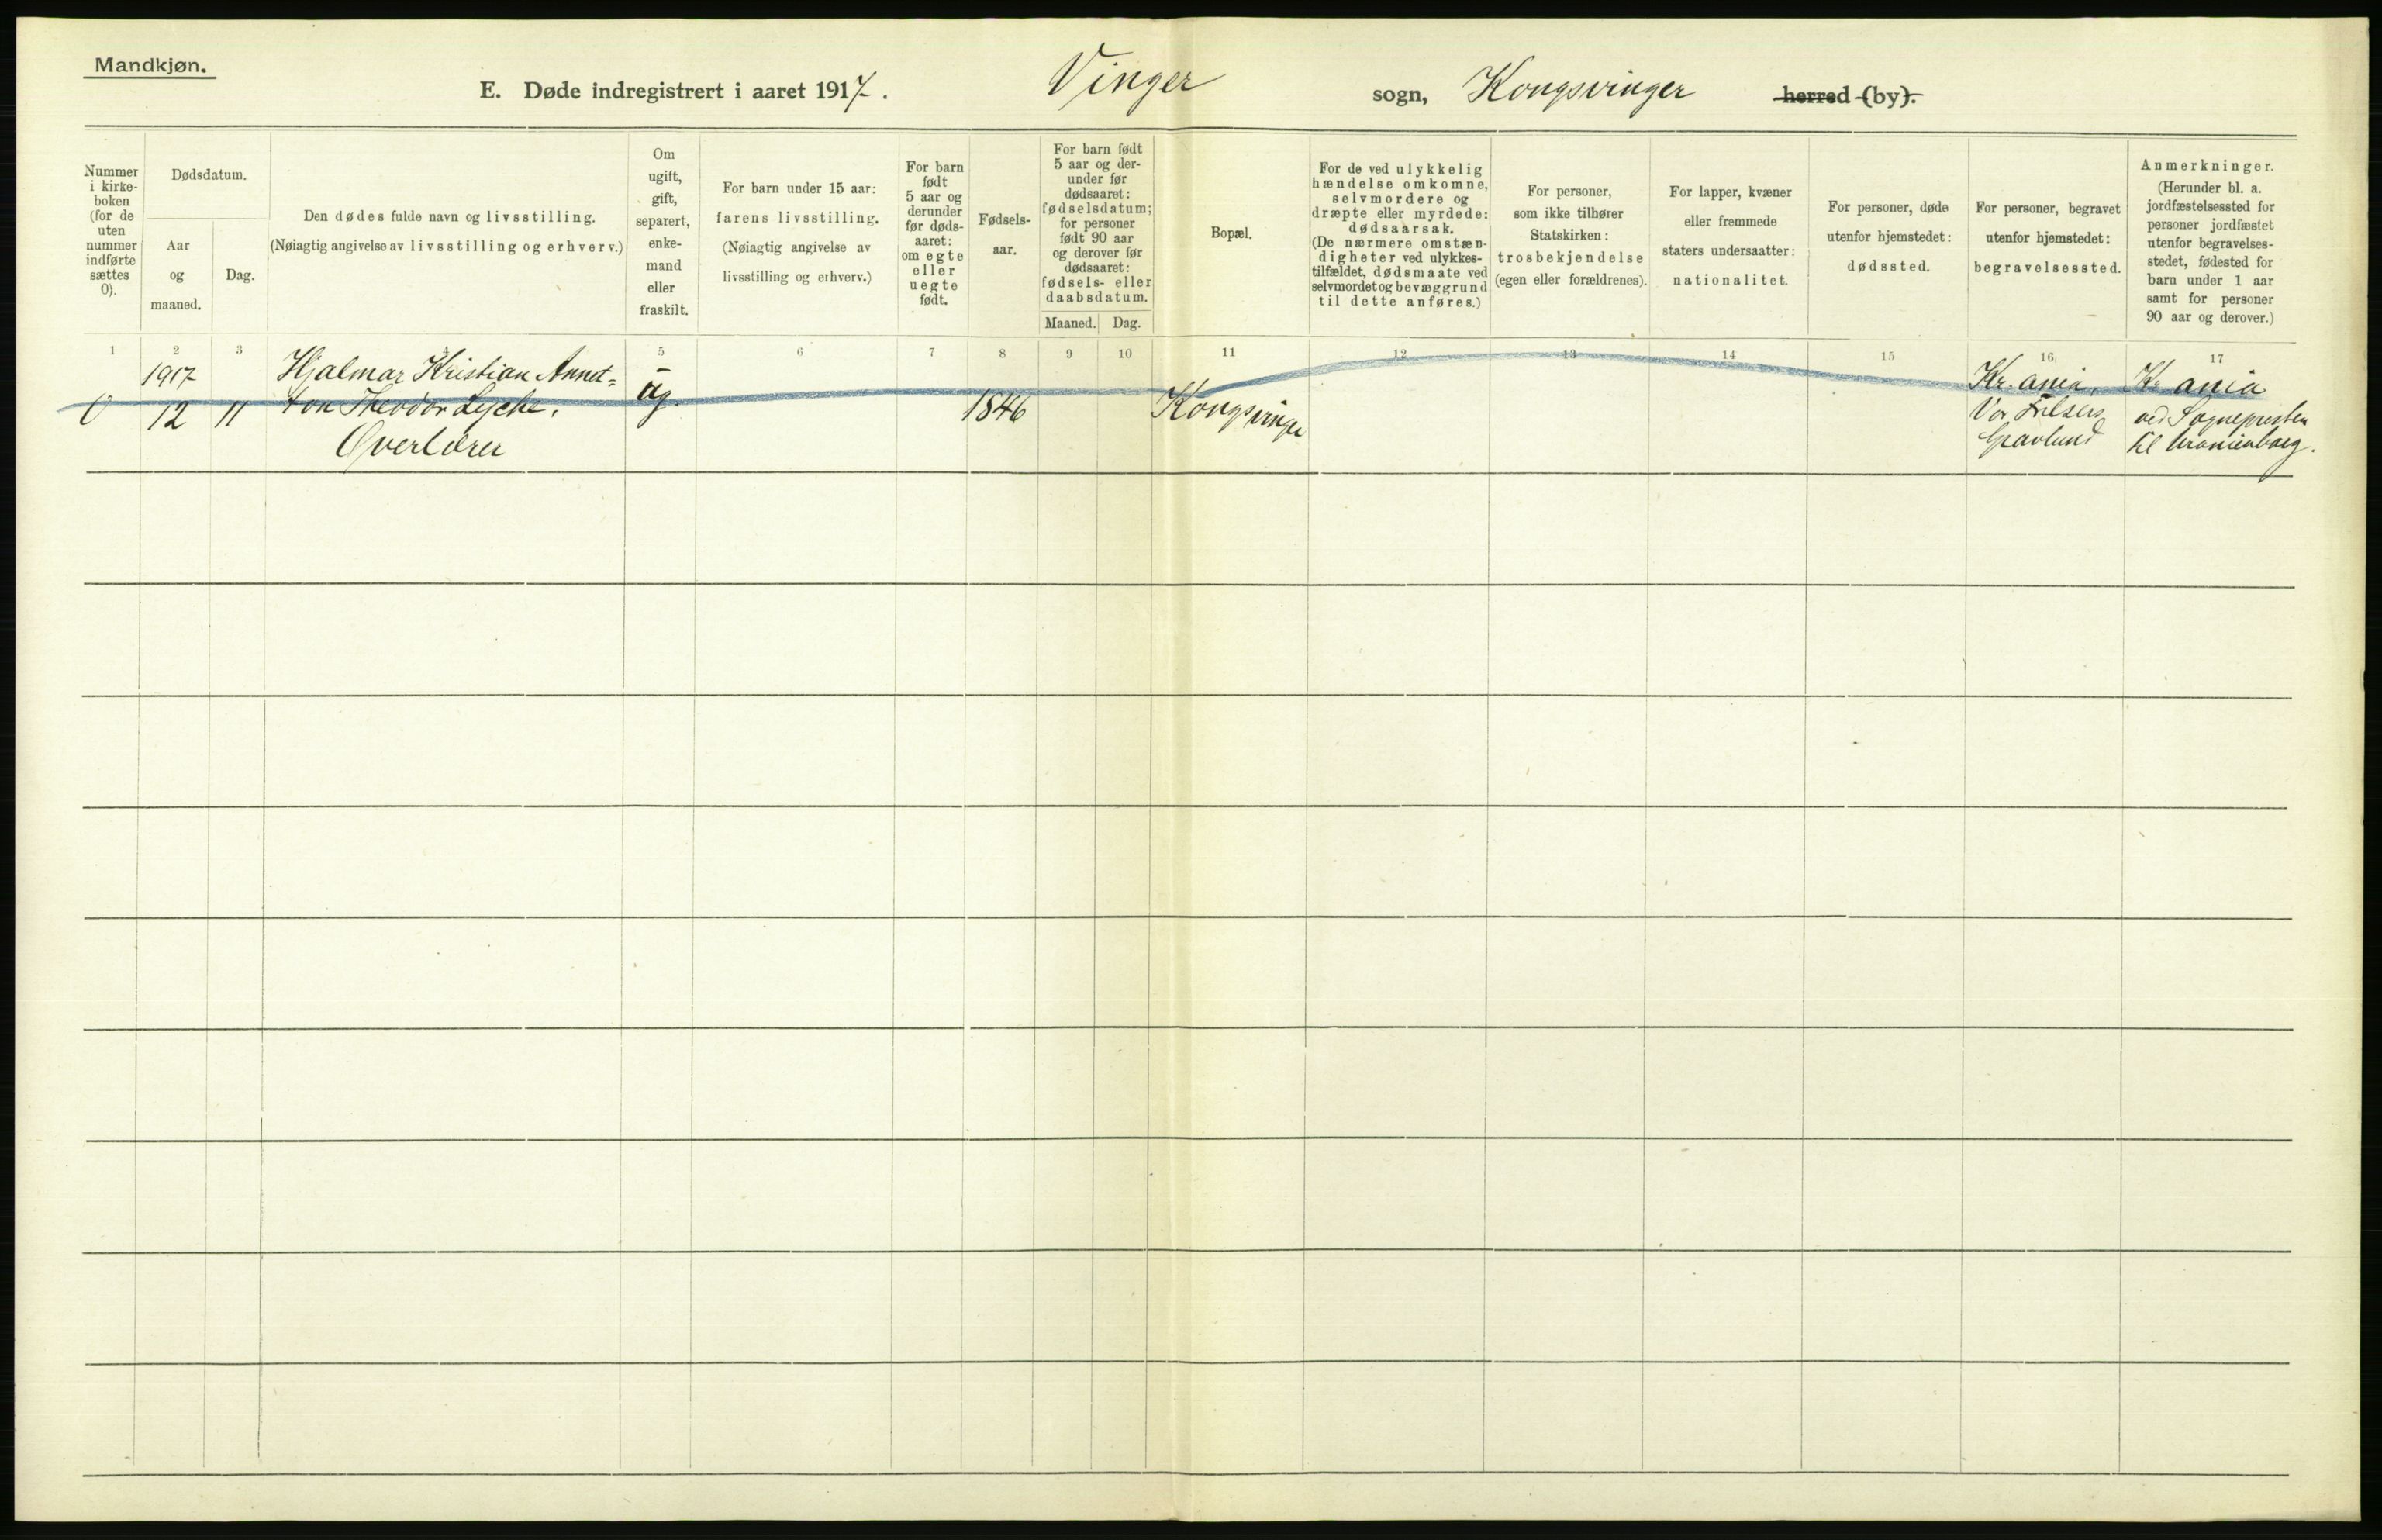 Mandkjøn.
E. Døde indregistrert i aaret 1917. Vinger sogn, Kongsvinger herred (by).
Nummer
i kirke-
boken
(for de
uten
nummer
indførte
sættes
0).
Dødsdatum.
Aar
og
maaned.
Dag.
Den dødes fulde navn og livsstilling.
(Nøiagtig angivelse av livsstilling og erhverv.)
Om
ugift,
gift,
separert,
enke-
mand
eller
fraskilt.
For barn under 15 aar:
farens livsstilling.
(Nøiagtig angivelse av
livsstilling og erhverv.)
For barn
født
5 aar og
derunder
før døds-
aaret:
om egte
eller
uegte
født.
Fødsels-
aar.
For barn født
5 aar og der-
under før
dødsaaret:
fødselsdatum;
for personer
født 90 aar
og derover før
dødsaaret:
fødsels- eller
daabsdatum.
Maaned.
Dag.
Bopæl.
For de ved ulykkelig
hændelse omkomne,
selvmordere og
dræpte eller myrdede:
dødsaarsak.
(De nærmere omstæn-
digheter ved ulykkes-
tilfældet, dødsmaate ved
selvmordet og bevæggrund
til dette anføres.)
For personer,
som ikke tilhører
Statskirken:
trosbekjendelse
(egen eller forældrenes).
For lapper, kvæner
eller fremmede
staters undersaatter:
nationalitet.
For personer, døde
utenfor hjemstedet:
dødssted.
For personer, begravet
utenfor hjemstedet:
begravelsessted.
Anmerkninger.
(Herunder bl. a.
jordfæstelsessted for
personer jordfæstet
utenfor begravelses-
stedet, fødested for
barn under 1 aar
samt for personer
90 aar og derover.)
1 2 3 4 5 6 7 8 9 10 11 12 13 14 15 16 17
0
1917
12
11
Hjalmar Kristian
ton Theodor Lyche.
Overlærer
ug.
1846
Kongsvinger
Kr.ania,
Vor Frelsers
Gravlund
Kr.ania
ved Sognepresten
til Uranienborg.